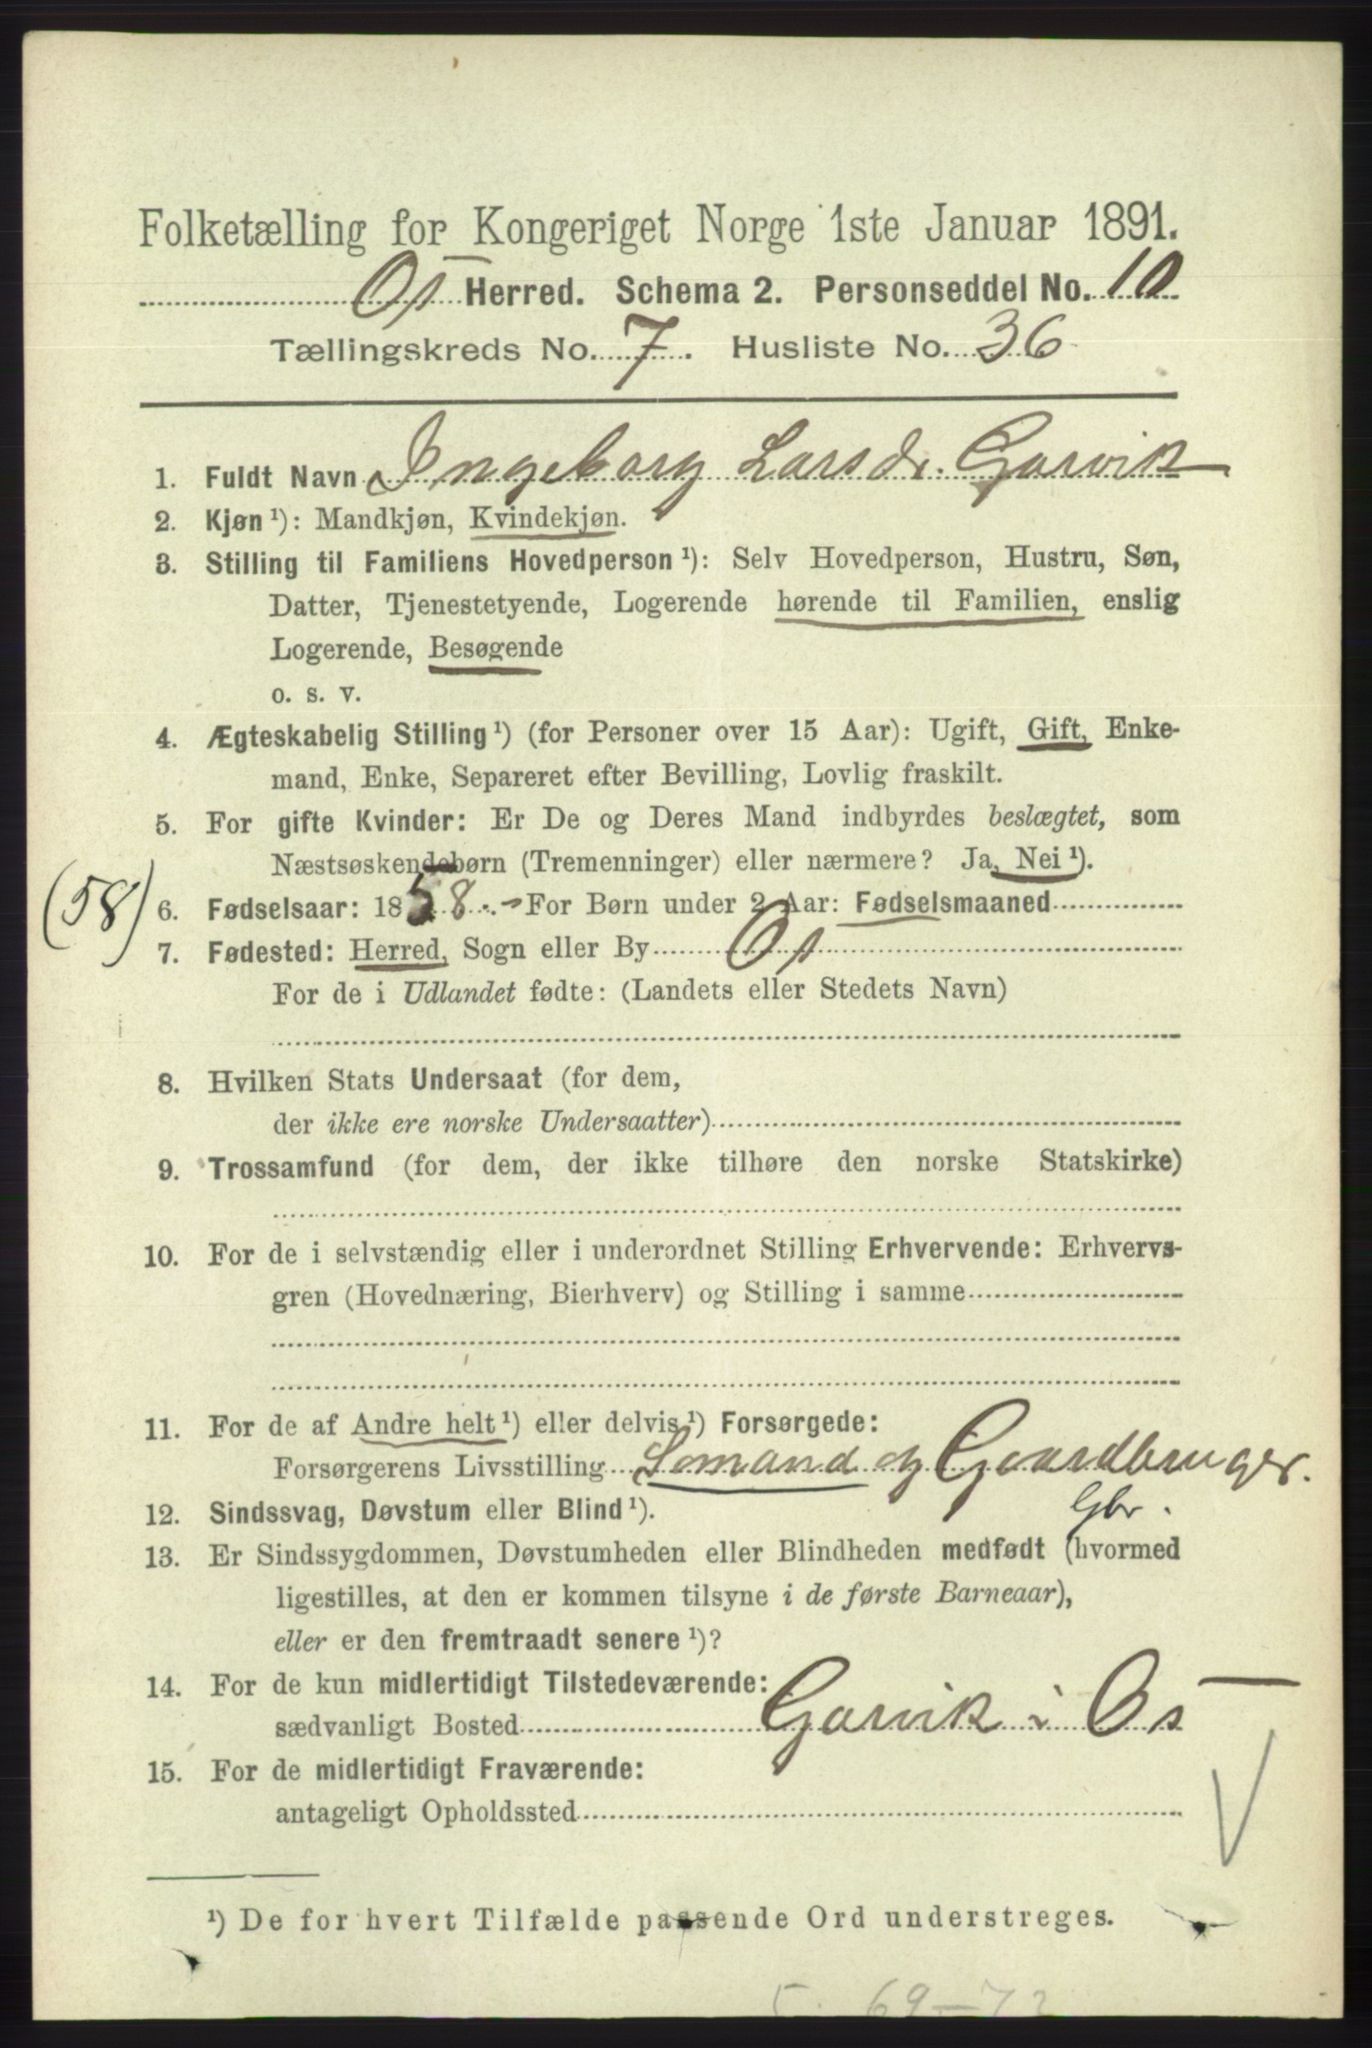 Folketælling for Kongeriget Norge 1ste Januar 1891.
Os Herred. Schema 2. Personseddel No. 10
Tællingskreds No. 7. Husliste No. 36
1. Fuldt Navn Ingeborg Larsdr. Garvik
2. Kjøn ¹): Mandkjøn, Kvindekjøn.
3. Stilling til Familiens Hovedperson ¹): Selv Hovedperson, Hustru, Søn,
Datter, Tjenestetyende, Logerende hørende til Familien, enslig
Logerende, Besøgende
o. s. v.
4. Ægteskabelig Stilling ¹) (for Personer over 15 Aar): Ugift, Gift, Enke-
mand, Enke, Separeret efter Bevilling, Lovlig fraskilt.
5. For gifte Kvinder: Er De og Deres Mand indbyrdes beslægtet, som
Næstsøskendebørn (Tremenninger) eller nærmere? Ja, Nei ¹).
(58) 6. Fødselsaar: 1858. - For Børn under 2 Aar: Fødselsmaaned
7. Fødested: Herred, Sogn eller By Os
For de i Udlandet fødte: (Landets eller Stedets Navn)
8. Hvilken Stats Undersaat (for dem,
der ikke ere norske Undersaatter)
9. Trossamfund (for dem, der ikke tilhøre den norske Statskirke)
10. For de i selvstændig eller i underordnet Stilling Erhvervende: Erhvervs-
gren (Hovednæring, Bierhverv) og Stilling i samme
11. For de af Andre helt ¹) eller delvis ¹) Forsørgede:
Forsørgerens Livsstilling Sømand og Gaardbruger.
Gbr.
12. Sindssvag, Døvstum eller Blind ¹).
13. Er Sindssygdommen, Døvstumheden eller Blindheden medfødt (hvormed
ligestilles, at den er kommen tilsyne i de første Barneaar),
eller er den fremtraadt senere ¹)?
14. For de kun midlertidigt Tilstedeværende:
sædvanligt Bosted Garvik i Os
15. For de midlertidigt Fraværende:
antageligt Opholdssted
¹) De for hvert Tilfælde passende Ord understreges.